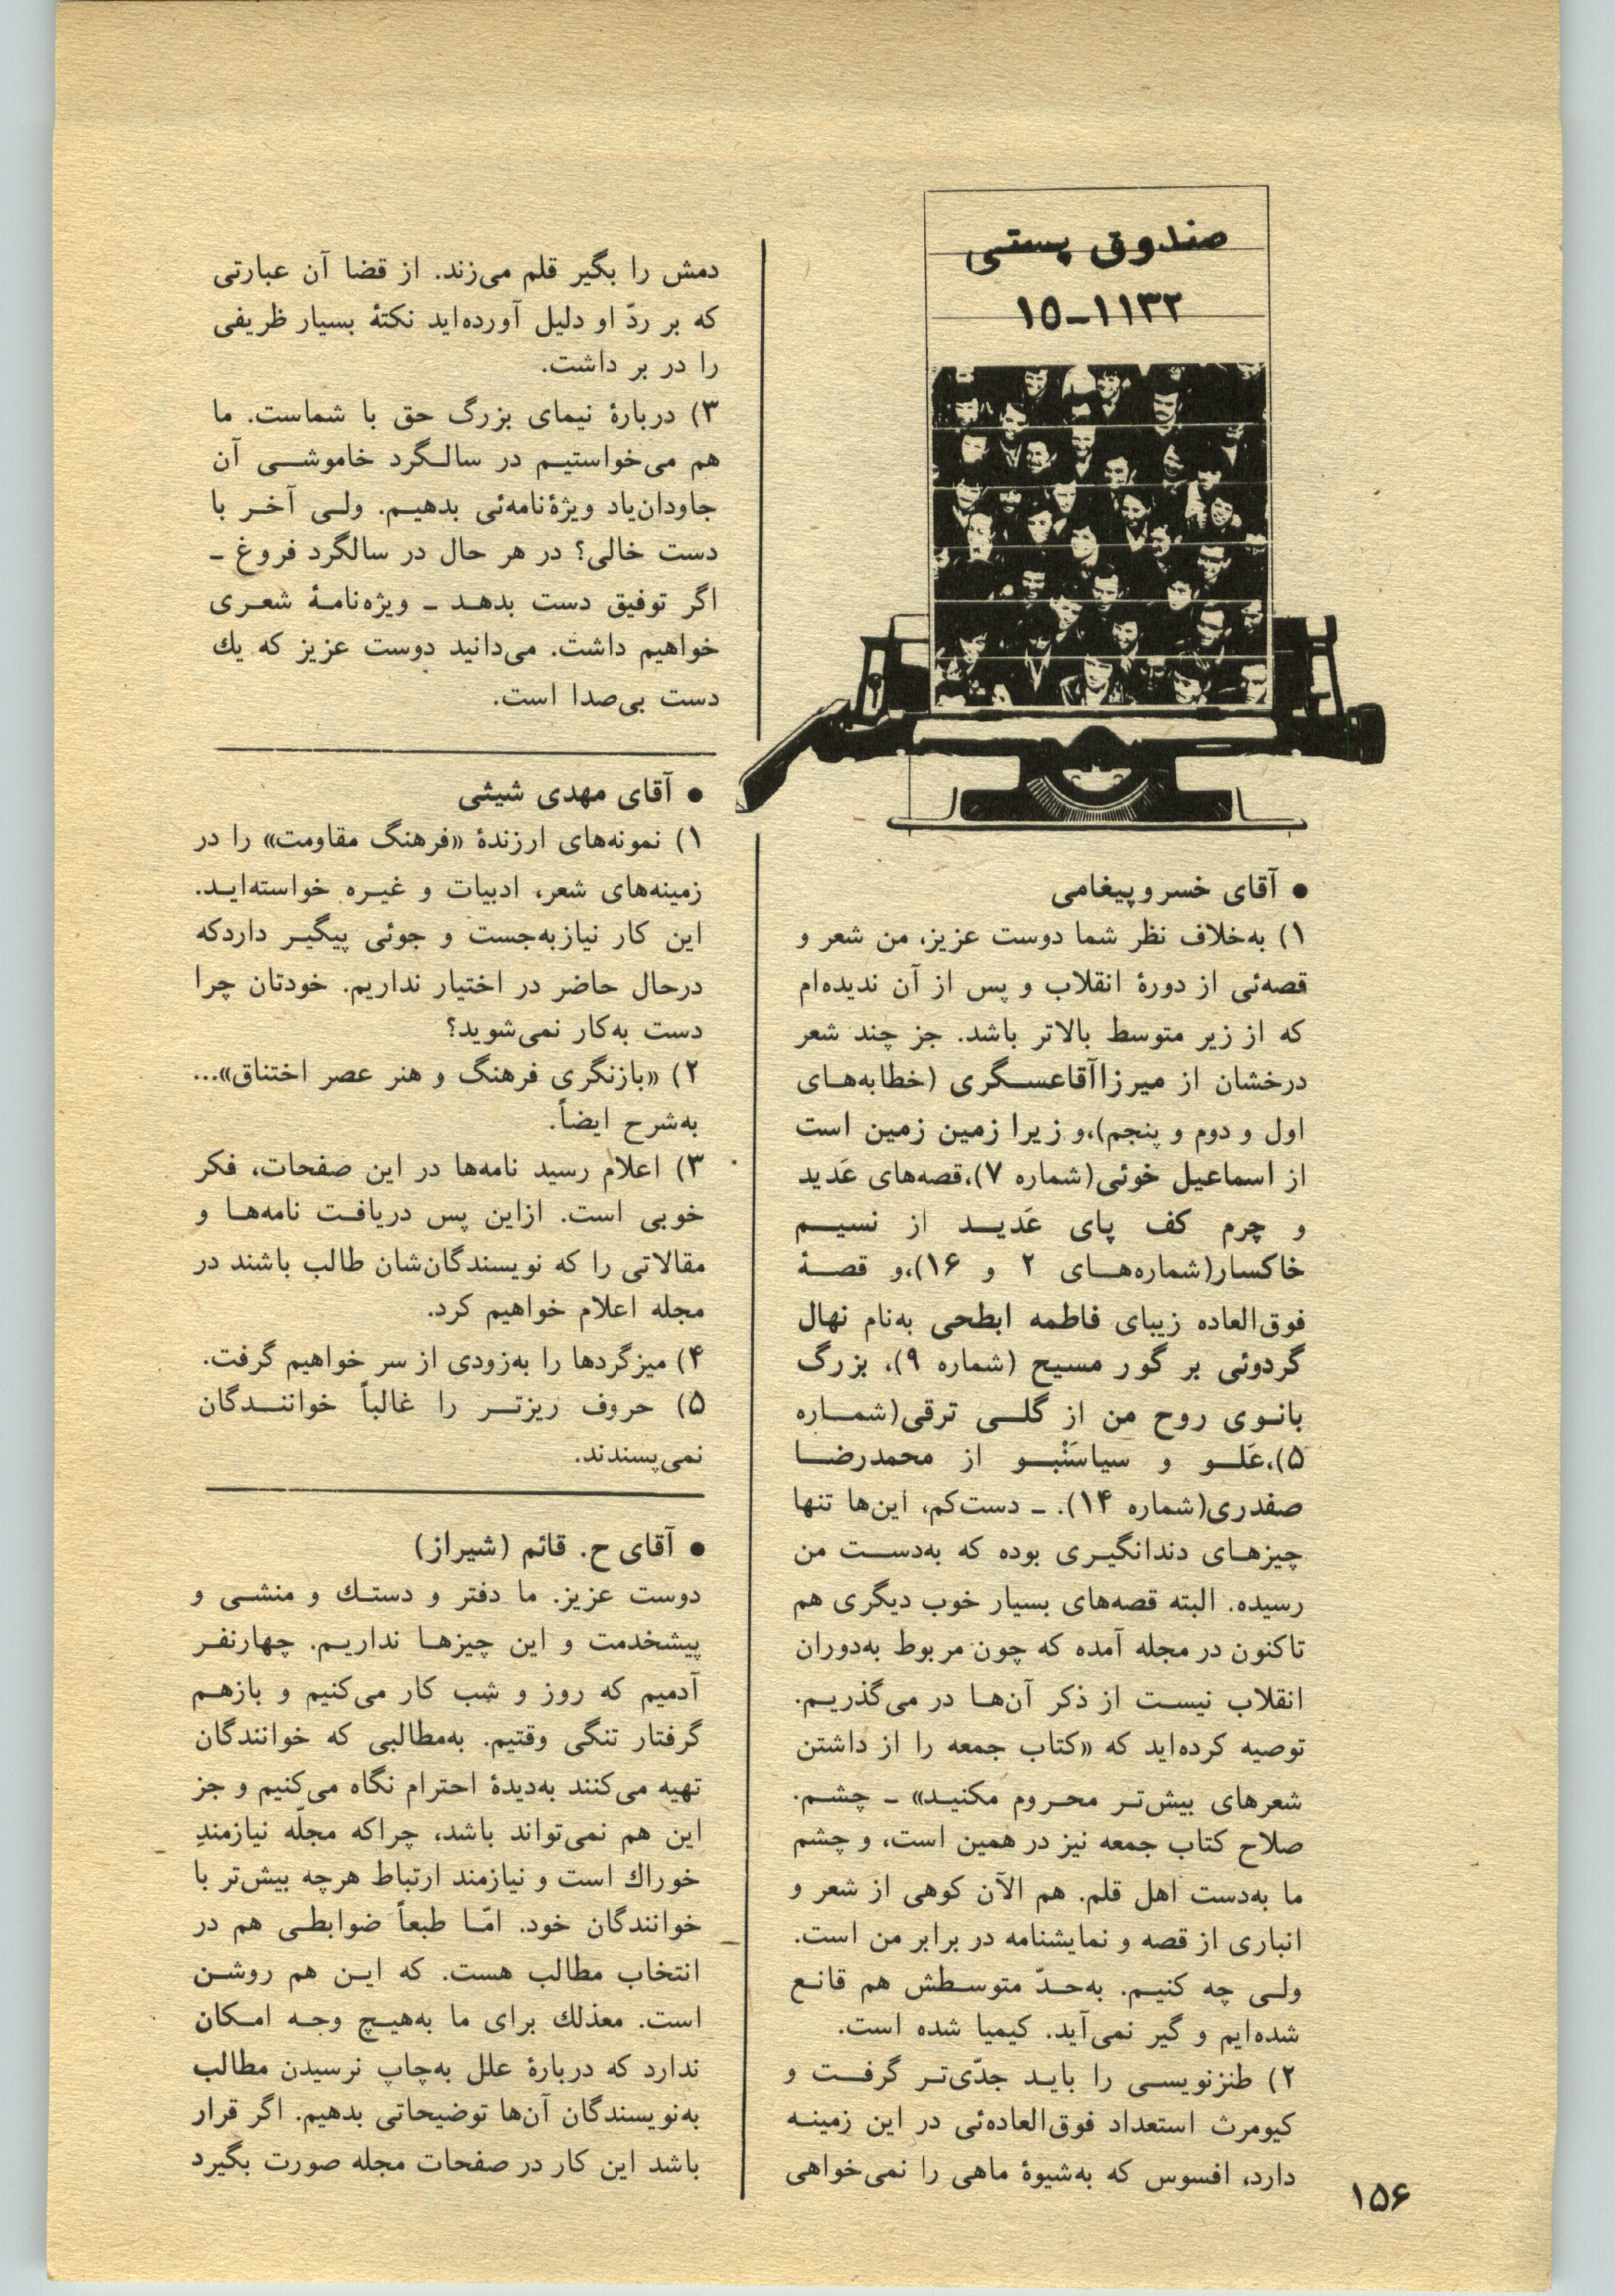 صندوق پستی
۱۵-۱۱۳۲
● آقای خسرو پیغامی
۱) به‌خلاف نظر شما دوست عزیز، من شعر و
قصه‌ئی از دورهٔ انقلاب و پس از آن ندیده‌ام
که از زیر متوسط بالاتر باشد. جز چند شعر
درخشان از میرزاآقاعسگری (خطابه‌های
اول و دوم و پنجم)،و زیرا زمین زمین است
از اسماعیل خوئی(شماره ۷)،قصه‌های عَدید
و چرم کف پای عَدید از نسیم
خاکسار(شماره‌های ۲ و ۱۶)،و قصهٔ
فوق‌العاده زیبای فاطمه ابطحی به‌نام نهال
گردوئی بر گور مسیح (شماره ۹)، بزرگ
بانوی روح من از گلی ترقی(شماره
۵)،عَلو و سیاسَنْبو از محمدرضا
صفدری(شماره ۱۴). ـ دست‌کم، این‌ها تنها
چیزهای دندانگیری بوده که به‌دست من
رسیده. البته قصه‌های بسیار خوب دیگری هم
تاکنون در مجله آمده که چون مربوط به‌دوران
انقلاب نیست از ذکر آن‌ها در می‌گذریم.
توصیه کرده‌اید که «کتاب جمعه را از داشتن
شعرهای بیش‌تر محروم مکنید» ـ چشم.
صلاح کتاب جمعه نیز در همین است، و چشم
ما به‌دست اهل قلم. هم الآن کوهی از شعر و
انباری از قصه و نمایشنامه در برابر من است.
ولی چه کنیم. به‌حدّ متوسطش هم قانع
شده‌ایم و گیر نمی‌آید. کیمیا شده است.
۲) طنزنویسی را باید جدّی‌تر گرفت و
کیومرث استعداد فوق‌العاده‌ئی در این زمینه
دارد، افسوس که به‌شیوهٔ ماهی را نمی‌خواهی
دمش را بگیر قلم می‌زند. از قضا آن عبارتی
که بر ردّ او دلیل آورده‌اید نکتهٔ بسیار ظریفی
را در بر داشت.
۳) دربارهٔ نیمای بزرگ حق با شماست. ما
هم می‌خواستیم در سالگرد خاموشی آن
جاودان‌یاد ویژهٔ‌نامه‌ئی بدهیم. ولی آخر با
دست خالی؟ در هر حال در سالگرد فروغ ـ
اگر توفیق دست بدهد ـ ویژه‌نامهٔ شعری
خواهیم داشت. می‌دانید دوست عزیز که یك
دست بی‌صدا است.
● آقای مهدی شیثی
۱) نمونه‌های ارزندهٔ «فرهنگ مقاومت» را در
زمینه‌های شعر، ادبیات و غیره خواسته‌اید.
این کار نیازبه‌جست و جوئی پیگیر داردکه
درحال حاضر در اختیار نداریم. خودتان چرا
دست به‌کار نمی‌شوید؟
۲) «بازنگری فرهنگ و هنر عصر اختناق»...
به‌شرح ایضاً.
۳) اعلام رسید نامه‌ها در این صفحات، فکر
خوبی است. ازاین پس دریافت نامه‌ها و
مقالاتی را که نویسندگان‌شان طالب باشند در
مجله اعلام خواهیم کرد.
۴) میزگردها را به‌زودی از سر خواهیم گرفت.
۵) حروف ریزتر را غالباً خوانندگان
نمی‌پسندند.
● آقای ح. قائم (شیراز)
دوست عزیز. ما دفتر و دستك و منشی و
پیشخدمت و این چیزها نداریم. چهارنفر
آدمیم که روز و شب کار می‌کنیم و بازهم
گرفتار تنگی وقتیم. به‌مطالبی که خوانندگان
تهیه می‌کنند به‌دیدهٔ احترام نگاه می‌کنیم و جز
این هم نمی‌تواند باشد، چراکه مجلّه نیازمندِ
خوراك است و نیازمند ارتباط هرچه بیش‌تر با
خوانندگان خود. امّا طبعاً ضوابطی هم در
انتخاب مطالب هست. که این هم روشن
است. معذلك برای ما به‌هیچ وجه امکان
ندارد که دربارهٔ علل به‌چاپ نرسیدن مطالب
به‌نویسندگان آن‌ها توضیحاتی بدهیم. اگر قرار
باشد این کار در صفحات مجله صورت بگیرد
۱۵۶